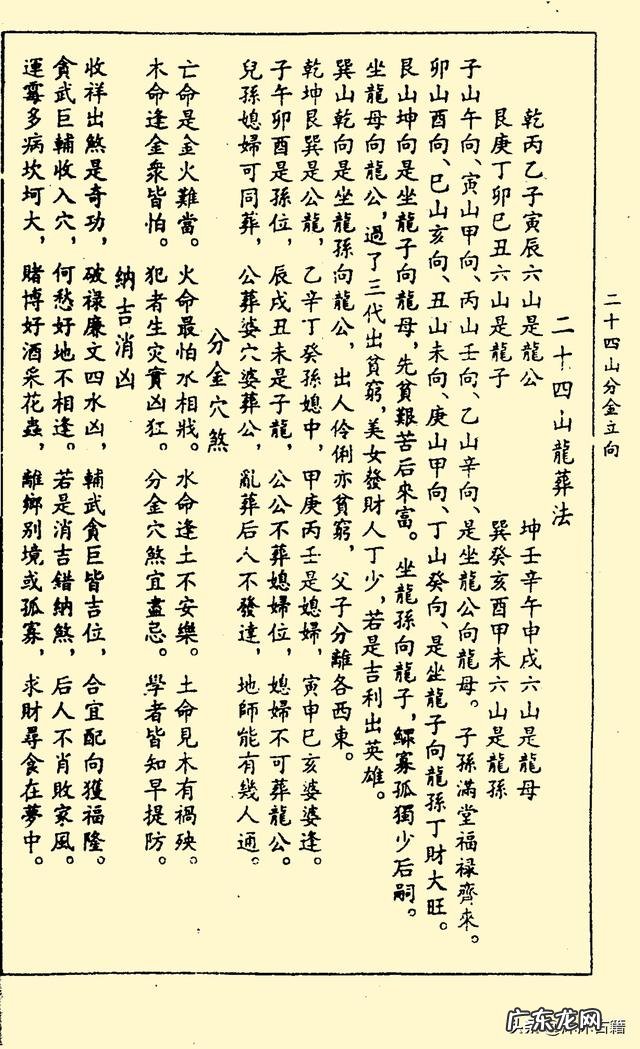 二十四山分金立向
二十四山龍葬法
乾丙乙子寅辰六山是龍公 坤壬辛午申戌六山是龍母
艮庚丁卯巳丑六山是龍子 巽癸亥酉甲未六山是龍孫
子山午向、寅山甲向、丙山壬向、乙山辛向、是坐龍公向龍母。子孫滿堂福禄齊來。
卯山酉向、巳山亥向、丑山未向、庚山甲向、丁山癸向、是坐龍子向龍孫丁財大旺。
艮山坤向是坐龍子向龍母，先貧艱苦后來富。坐龍孫向龍子，鰥寡孤獨少后嗣。
坐龍母向龍公，過了三代出貧窮，美女發財人丁少，若是吉利出英雄。
巽山乾向是坐龍孫向龍公，出人伶俐亦貧窮，父子分離各西東。
乾坤艮巽是公龍，乙辛丁癸孫媳中，甲庚丙壬是媳婦，寅申巳亥婆婆逢。
子午卯酉是孫位，辰戌丑未是子龍，公公不葬媳婦位，媳婦不可葬龍公。
兒孫媳婦可同葬，公葬婆穴婆葬公，亂葬后人不發達，地師能有幾人通。
分金穴煞
亡命是金火難當。火命最怕水相戕。水命逢土不安樂。土命見木有禍殃。
木命逢金衆皆怕。犯者生灾實凶狂。分金穴煞宜盡忌。學者皆知早提防。
納吉消凶
收祥出煞是奇功，破禄廉文四水凶，輔武貪巨皆吉位，合宜配向獲福隆。
貪武巨輔收入穴，何愁好地不相逢。若是消吉錯納煞，后人不肖敗家風。
運霉多病坎坷大，賭博好酒采花蟲，離鄉别境或孤寡，求財尋食在夢中。
广东龙网
古籍